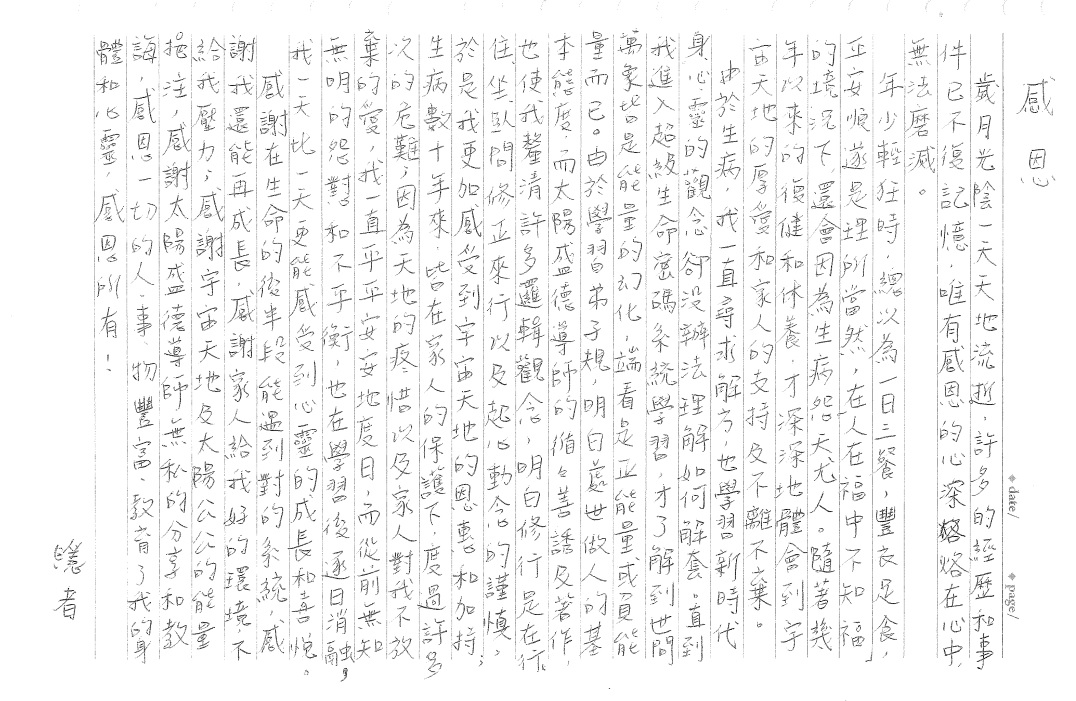 感恩
歲月光陰一天天地流逝，許多的經歷和事
件已不復記憶，唯有感恩的心深烙在心中，
無法磨滅。
年少輕狂時，總以為一日三餐，豐衣足食，
平安順遂是理所當然，在「人在福中不知福」
的境況下，還會因為生病怨天尤人。隨著幾
年以來的復健和休養，才深深地體會到宇
宙天地的厚愛和家人的支持及不離不棄。
由於生病，我一直尋求解方，也學習新時代
身、心、靈的觀念，卻沒辦法理解如何解套。直到
我進入超級生命密碼系統學習，才了解到世間
萬象皆是能量的幻化，端看是正能量或負能
量而已。由於學習弟子規，明白處世做人的基
本態度，而太陽盛德導師的循循善誘及著作，
也使我釐清許多邏輯觀念，明白修行是在行、
住、坐、臥間修正來行以及起心動念的謹慎；
於是我更加感受到宇宙天地的恩惠和加持，
生病數十年來，皆在家人的保護下，度過許多
次的危難，因為天地的疼惜以及家人對我不放
棄的愛，我一直平平安安地度日，而從前無知
無明的怨懟和不平衡，也在學習後逐日消融，
我一天比一天更能感受到心靈的成長和喜悅。
感謝在生命的後半段能遇到對的系統，感
謝我還能再成長，感謝家人給我好的環境，不
給我壓力；感謝宇宙天地及太陽公公的能量
挹注，感謝太陽盛德導師無私的分享和教
誨，感恩一切的人、事、物豐富、教育了我的身
體和心靈，感恩所有！
date/
page/